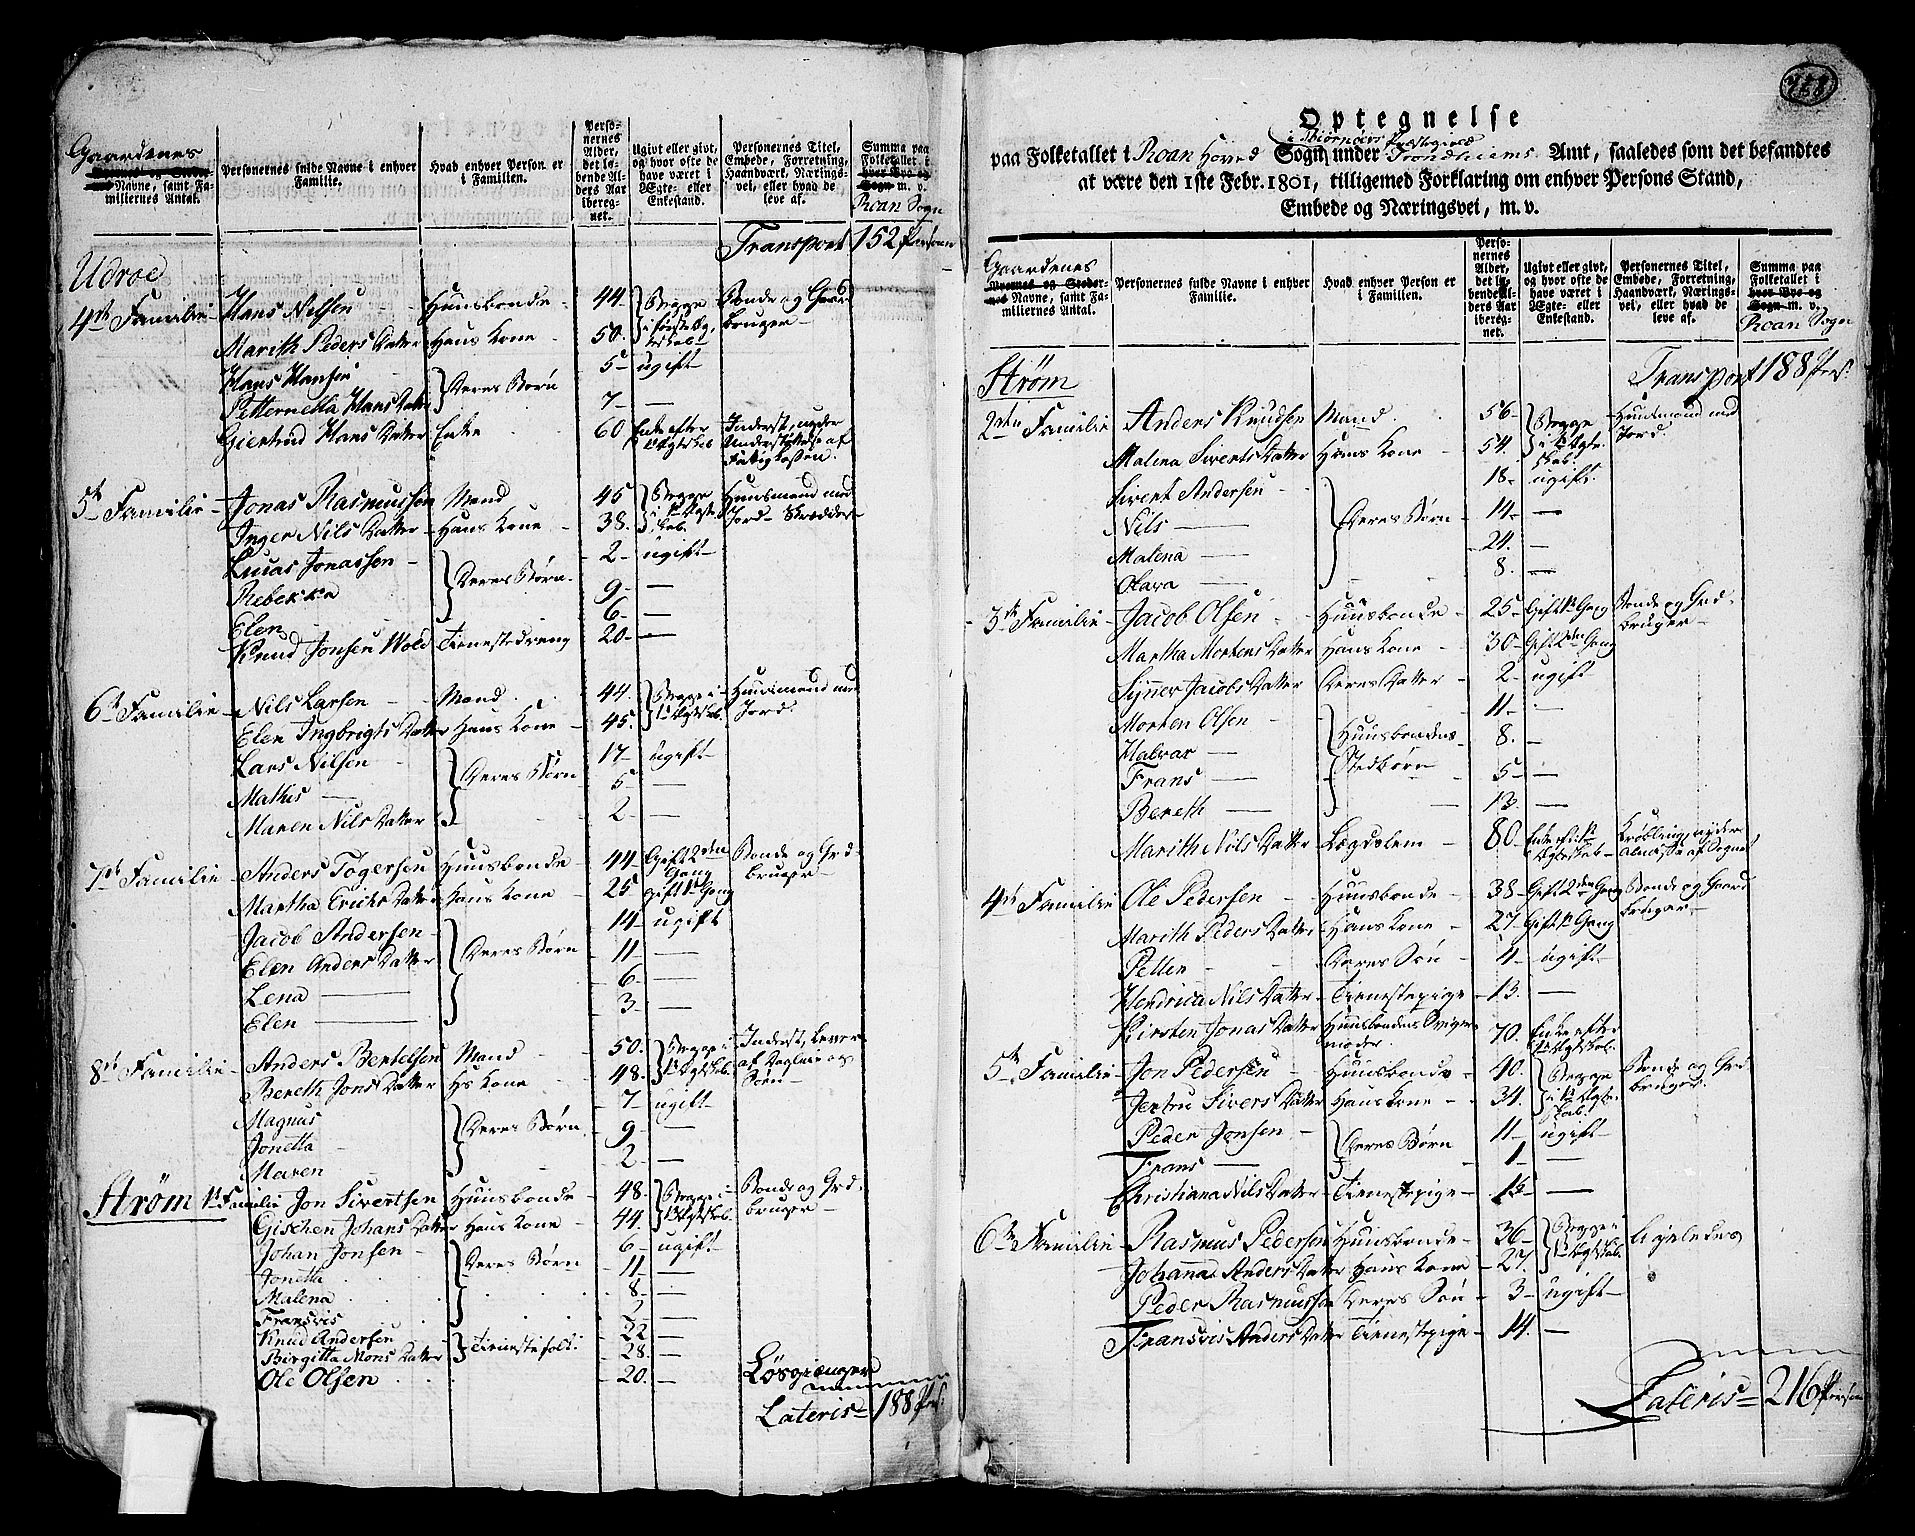 Gaardenes
Byernes og Stedernes Navne, samt Familiernes Antal.
Personernes fulde Navne i enhver Familie.
Hvad enhver Person er i Familien.
Personernes Alder, det løbende Alders Aar iberegnet.
Ugivt eller givt, og hvor ofte de have været i Ægte- eller Enkestand.
Personernes Titel, Embede, Forretning, Haandværk, Næringsvei, eller hvad de leve af.
Summa paa Folketallet i hver Bye og Sogn m. v.
Roan Sogn
Transport 152 Personer
Udroe
4de Familie - Hans Nilsen Huusbonde - 44. Begge i første Ægteskab Bonde og Gaardbruger -
Marith Peders Datter Hans Kone - 50.
Hans Hansen } Deres Børn 5 - ugift
Petternella Hans Datter 7 - —
Giertrud Hans Datter Enke 60 Enke efter 1 Ægteskab Inderst, nyder Understøttelse af Fattigkassen.
5te Familie - Jonas Rasmussen Mand 45 } Begge i 1te Ægteskab. Huusmand med Jord - Skrædder -
Inger Nils Datter - Hans Kone - 38.
Lucas Jonassen - } Deres Børn. 2 - ugift -
Rebekka 9 - —
Elen 6 - —
Knud Jonsen Wold Tienestedreng 20 - —
6te Familie - Nils Larsen - Mand 44 } Begge i 1te Ægteskab. Huusmand med Jord.
Elen Ingbrigts Datter Hans Kone - 45.
Lars Nilsen - } Deres Børn 17 - ugift -
Mathis — 5 —
Maren Nils Datter 2 - —
7de Familie - Anders Togersen Huusbonde - 44 Gift 2den Gang Bonde og Grdbruger -
Martha Erichs Datter Hans Kone - 25 gift 1te Gang
Jacob Andersen - } Deres Børn 14 - ugift
Elen Anders Datter 11 - —
Lena — 6 - —
Elen — 3 - —
8de Familie - Anders Bertelsen Mand - 50. } Begge i 1te Ægteskab. Inderst, Lever af Dagleie og Søen -
Bereth Jons Datter Hs Kone - 48.
Magnus } Deres Børn 7 - ugift
Jonetta - 9 - —
Maren 2 - —
Strøm 1te Familie Jon Sivertsen Huusbonde - 48. } Begge i 1te Ægteskab. Bonde og Grdbruger -
Gischen Johans Datter Hans Kone - 44.
Johan Jonsen - } Deres Børn 6 - ugift -
Jonetta 11 - —
Malena 8 - —
Fransvis 2 - —
Knud Andersen } Tienestefolk. 22 —
Birgitta Mons Datter 28 - —
Ole Olsen 20. — Løsgiænger
Lateris = 188 Pers.
758
Optegnelse
i Biørnøers Præstegield
paa Folketallet i Roan Hoved Sogn under Trondhiems Amt, saaledes som det befandtes
at være den 1ste Febr. 1801, tilligemed Forklaring om enhver Persons Stand,
Embede og Næringsvei, m. v.
Gaardenes
Byernes og Stedernes Navne, samt Familiernes Antal.
Personernes fulde Navne i enhver Familie.
Hvad enhver Person er i Familien.
Personernes Alder, det løbende Alders Aar iberegnet.
Ugivt eller givt, og hvor ofte de have været i Ægte- eller Enkestand.
Personernes Titel, Embede, Forretning, Haandværk, Næringsvei, eller hvad de leve af.
Summa paa Folketallet i hver Bye og Sogn m. v.
Roan Sogn
Strøm
Transport 188 Pers.
2den Familie Anders Knudsen Mand 56 - } Begge i 1te Ægteskab. Huusmand med Jord.
Malena Siverts Datter Hans Kone - 54.
Sivert Andersen - } Deres Børn 18 - ugift.
Nils — 14 - —
Malena — 24. —
Olava — 8. —
3die Familie - Jacob Olsen Huusbonde - 25 - Gift 1te Gang Bonde og Grdbruger -
Martha Mortens Datter Hans Kone - 30 - Gift 2den Gang
Synner Jacobs Datter Deres Datter 2 - ugift
Morten Olsen } Huusbondens Stedbørn 11 - —
Halvar — 8. —
Frans — 5 - —
Bereth — 13. —
Marith Nils Datter Lægdslem 80. Enke efter 1te Ægteskab - Krøbling, nyder almisse af Sognet
4de Familie Ole Pedersen Huusbonde - 38 - Gift 2den Gang Bonde og Gaardbruger -
Marith Peders Datter Hans Kone - 27 - Gift 1te Gang
Petter Deres Søn - 4 - ugift -
Hendrica Nils Datter - Tienestepige - 13. —
Kirsten Jonas Datter Huusbondens Svigermoder. 70. Enke efter 1te Ægteskab.
5te Familie Jon Pedersen Huusbonde - 40. } Begge i 1te Ægteskab. Bonde og Grdbruger
Jertru Sivers Datter Hans Kone - 34.
Peder Jonsen - } Deres Børn 11 - ugift -
Frans — 1 - —
Christiana Nils Datter Tienestepige - 15 - —
6te Familie - Rasmus Pedersen Huusbonde - 36 - } Begge i 1te Ægteskab. ligeledes
Johanna Anders Datter Hans Kone - 27.
Peder Rasmussen Deres Søn - 3 - ugift -
Fransvis Anders Datter Tienestepige - 14. —
Lateris = 216 Personer